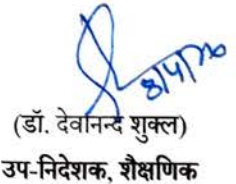 (डॉ. देवानन्द शुक्ल)
उप-निदेशक, शैक्षणिक